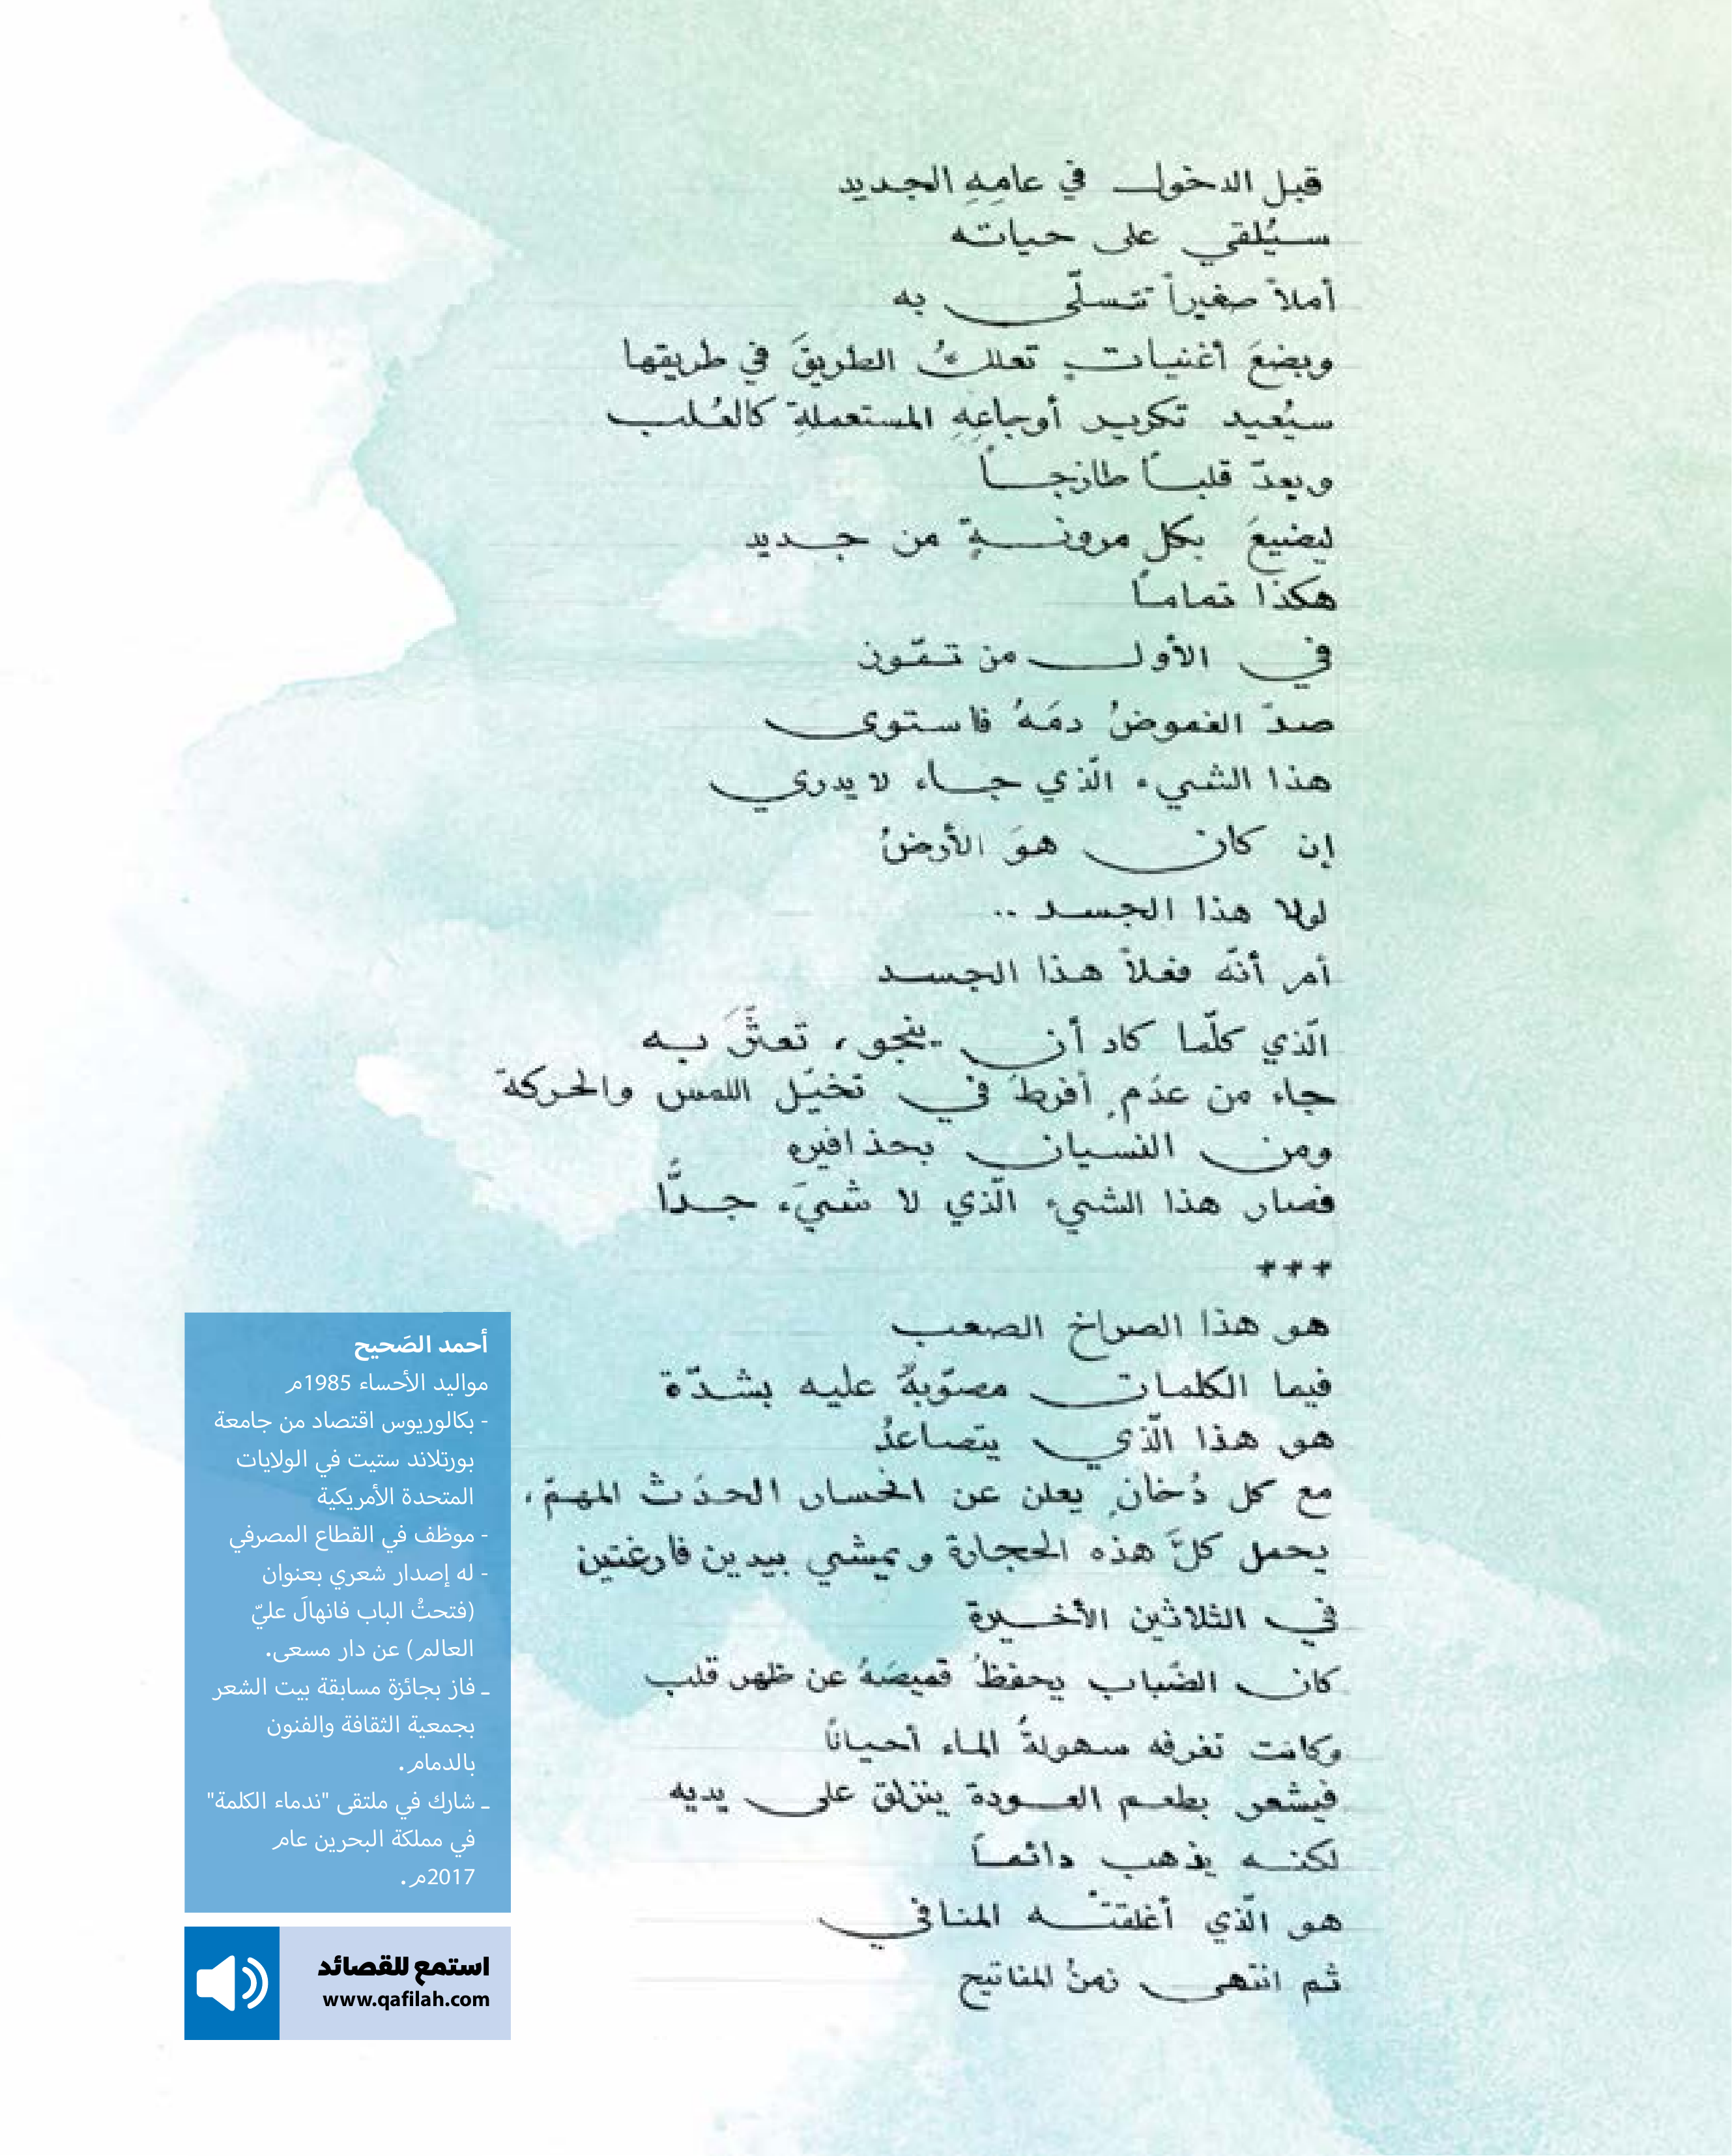 قبل الدخول في عامِهِ الجديد
سيُلقي على حياته
أملاً صغيراً تتسلّى به
ويضعَ أغنياتٍ تعلكُ الطريقَ في طريقها
سيُعيد تكرير أوجاعِهِ المستعملةِ كالعُلب
ويعدّ قلباً طازجاً
ليضيعَ بكل مرونةٍ من جديد
هكذا تماماً
في الأول من تمّوز
صدّ الغموضُ دمَهُ فاستوى
هذا الشيء الّذي جاء لا يدري
إن كان هوَ الأرضُ
لولا هذا الجسد ..
أم أنّه فعلاً هذا الجسد
الّذي كلّما كاد أن ينجو، تعثّرَ به
جاء من عدَمٍ أفرطَ في تخيّل اللمس والحركة
ومن النسيان بحذافيره
فصار هذا الشيء الّذي لا شيءَ جدًّا
***
هو هذا الصراخ الصعب
فيما الكلمات مصوّبةٌ عليه بشدّة
هو هذا الّذي يتصاعدُ
مع كل دُخانٍ يعلن عن انحسار الحدَث المهمّ،
يحمل كلَّ هذه الحجارة ويمشي بيدين فارغتين
في الثلاثين الأخيرة
كان الضّباب يحفظُ قميصَهُ عن ظهر قلب
وكانت تغرفه سهولةُ الماء أحيانًا
فيشعر بطعم العودة ينزلق على يديه
لكنه يذهب دائماً
هو الّذي أغلقتْه المنافي
ثم انتهى زمنُ المفاتيح
أحمد الصَحيح
مواليد الأحساء 1985م
- بكالوريوس اقتصاد من جامعة
بورتلاند ستيت في الولايات
المتحدة الأمريكية
- موظف في القطاع المصرفي
- له إصدار شعري بعنوان
(فتحتُ الباب فانهالَ عليّ
العالم) عن دار مسعى.
ـ فاز بجائزة مسابقة بيت الشعر
بجمعية الثقافة والفنون
بالدمام.
ـ شارك في ملتقى "ندماء الكلمة"
في مملكة البحرين عام
2017م.
استمع للقصائد
www.qafilah.com